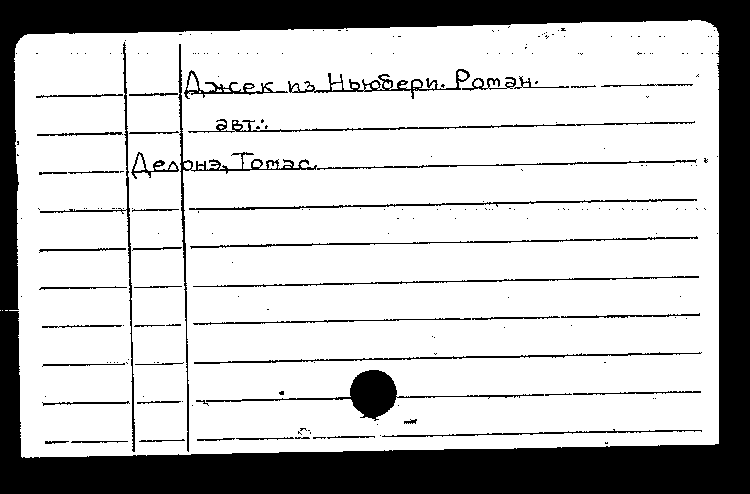 Джек из Ньюбери. Роман.
авт.:
Делонэ, Томас.